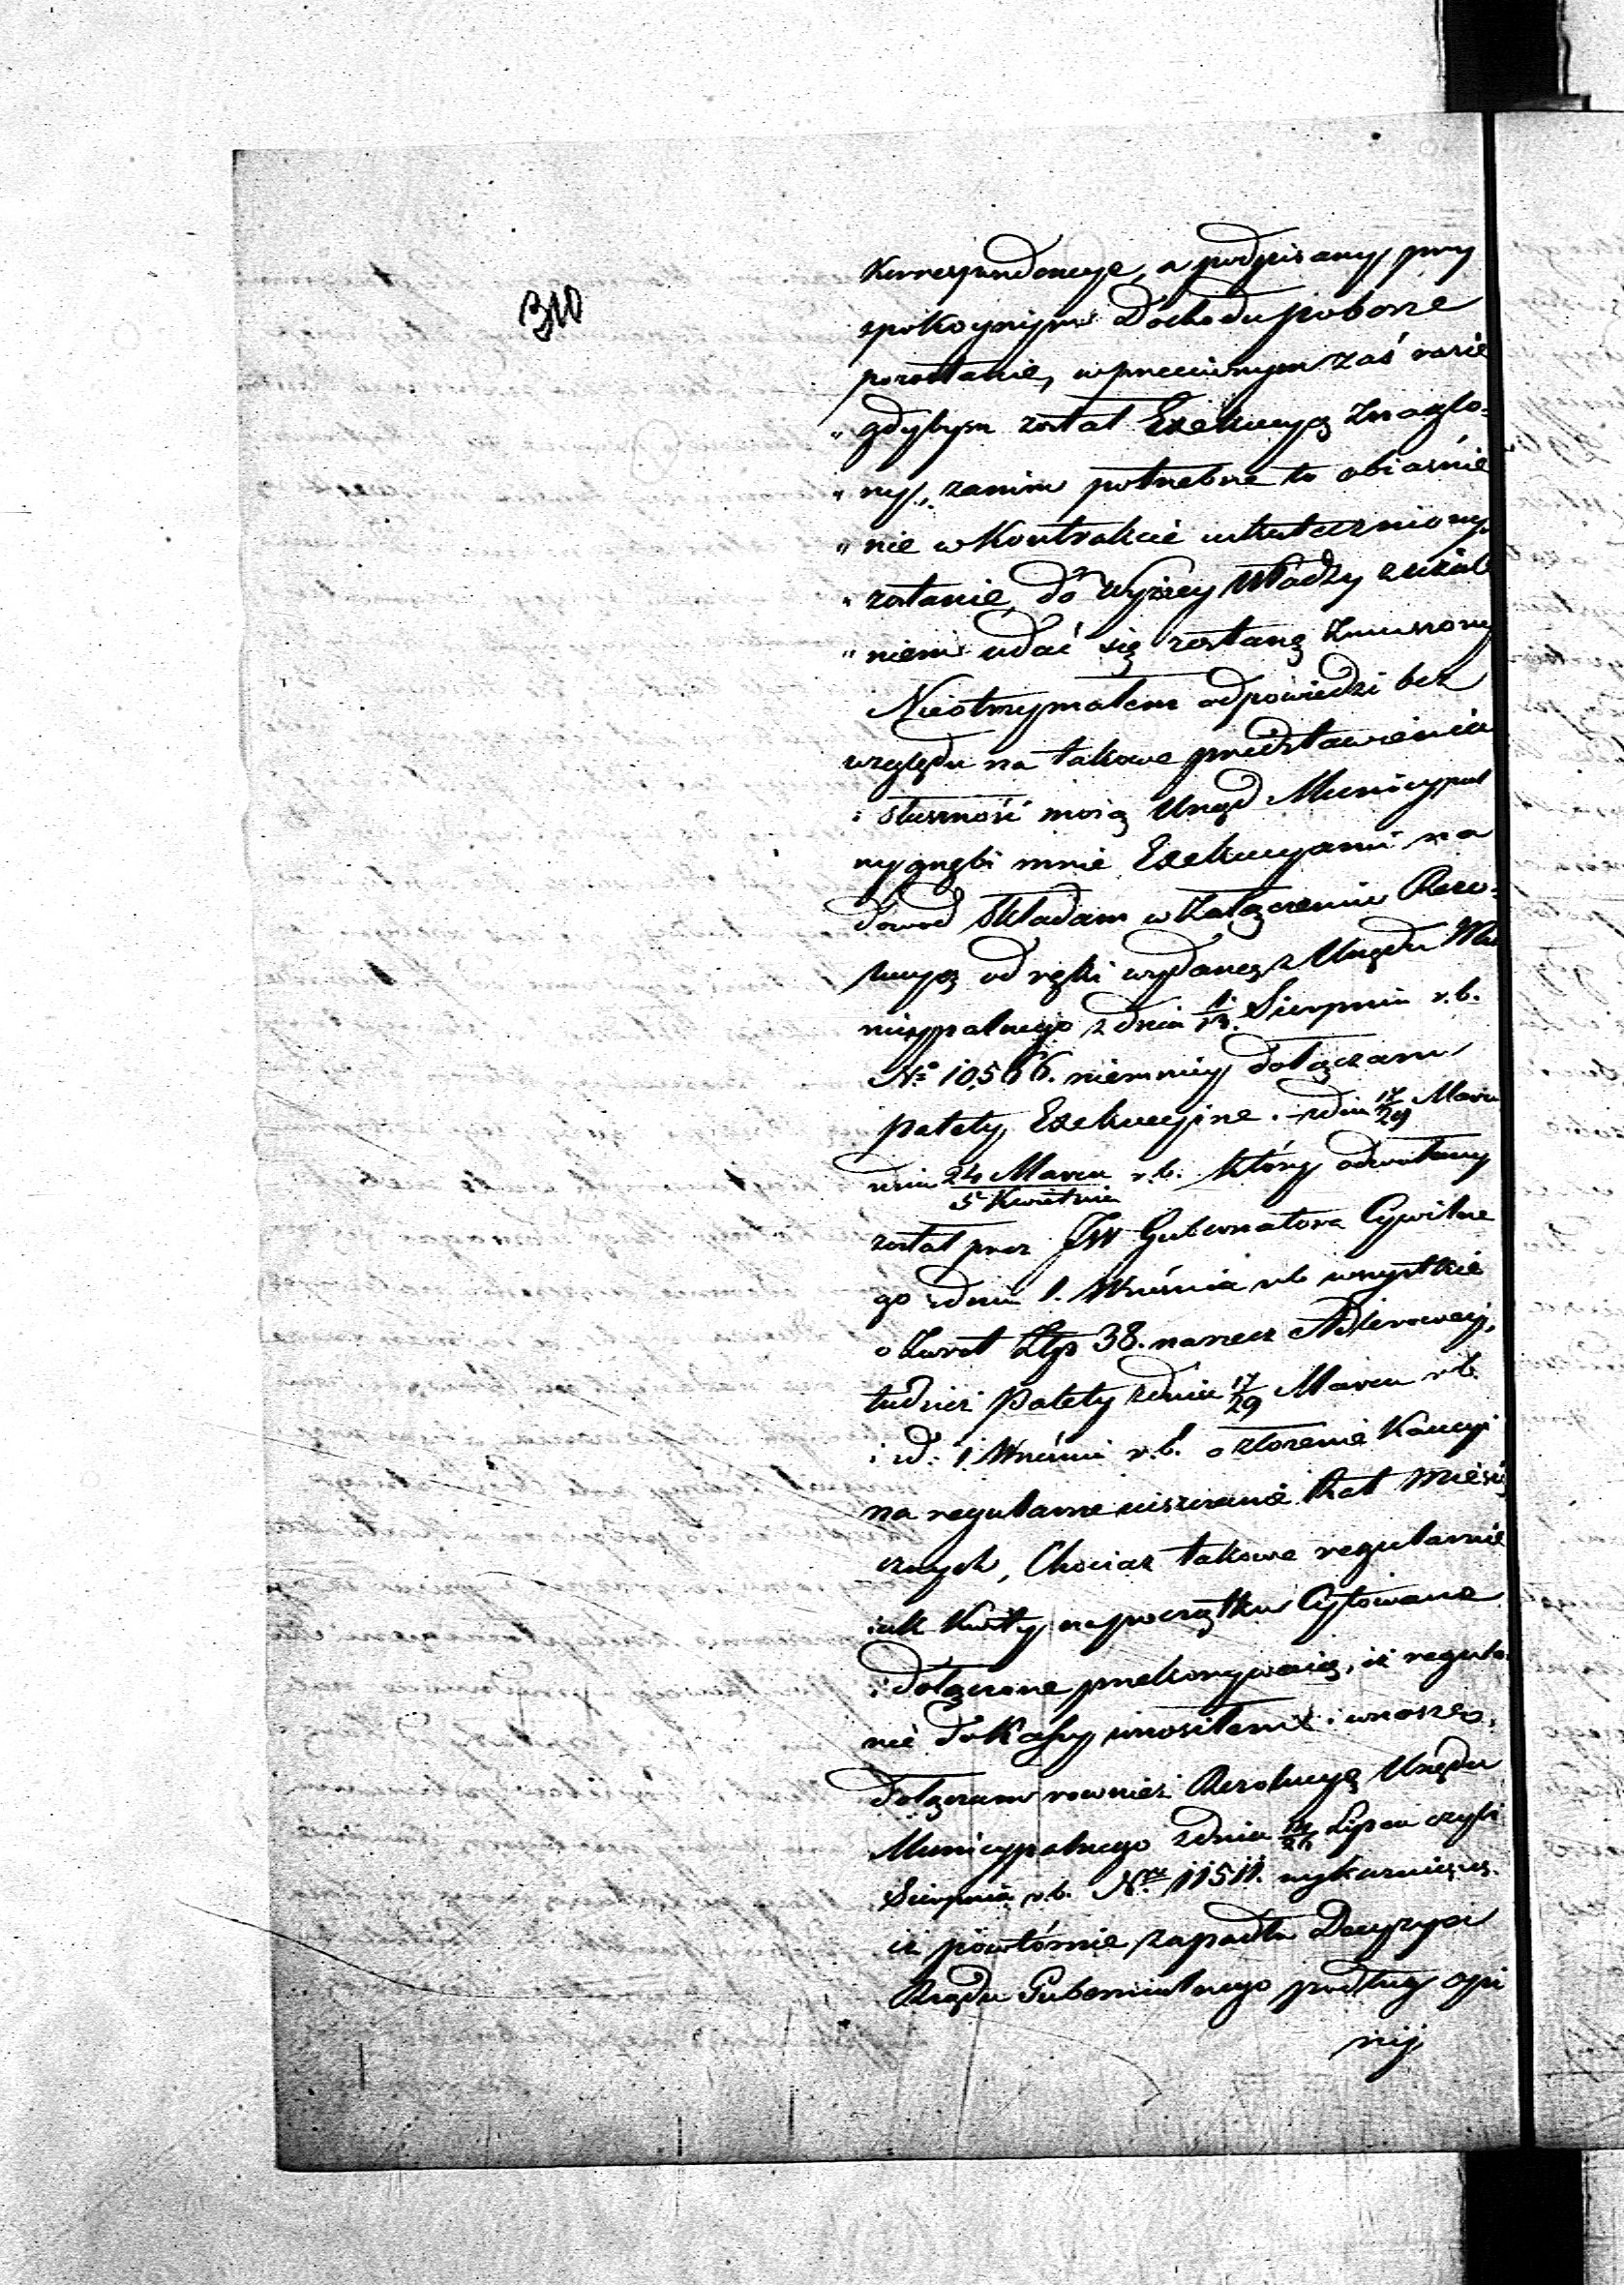 310
Korrespondencye, a podpisany przy
spokoynym Dochodu poborze
pozostanie, w przeciwnym zaś razie
„ gdybym został Exekucyą znaglo-
„ ny, zanim potrzebne to obiaśnie
„ nie w Kontrakcie uskutecznionym
„ zostanie, do Wyższey Władzy z użale
„ niem udać się zostanę zmuszony
Nieotrzymałem odpowiedzi bez
względu na takowe przedstawienia
i słuszność moią Urząd Municypal
ny gnębi mnie Exekucyami na
dowod składam w załączeniu Rezo-
lucyą od ręki wydaną z Urzędu Mu
nicypalnego z dnia 1/13. Sierpnia r. b.
No 10,566. niemniey dołączam
palety Exekucyine. z dnia 17/29 Marca
dnia 24 Marca / 5 Kwietnia r. b. który odwołany
został przez JW Gubernatora Cywilne
go z dnia 1. Września r b wszystkie
o zwrot Złp 38. na rzecz
tudzież Palety z dnia 17/29 Marca r b.
i z d: 1. Września r. b. o złożenie Kaucyi
na regularne uiszczanie Rat Miesię
cznych, Chociaż takowe regularnie
iak Kwity na początku Cytowane
i dołączone przekonywaią, iż regular
nie do Kassy wnosiłem i wnoszę,
Dołączam rownież Rezolucyą Urzędu
Municypalnego z dnia 14/26 Lipca czyli
Sierpnia r. b. Nr 11511. wykazuiącą
iż powtórnie zapadła Decyzya
Rządu Gubernialnego podług opi
nij